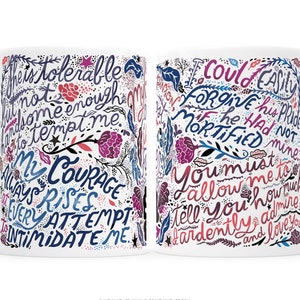 He is tolerable
not
handsome enough
to tempt me
My Courage
Always Rises
Every Attempt
Intimidate Me.
I could easily
forgive his
if he had
Mortified
You must
allow me to
tell you how
ardently I admire
and love